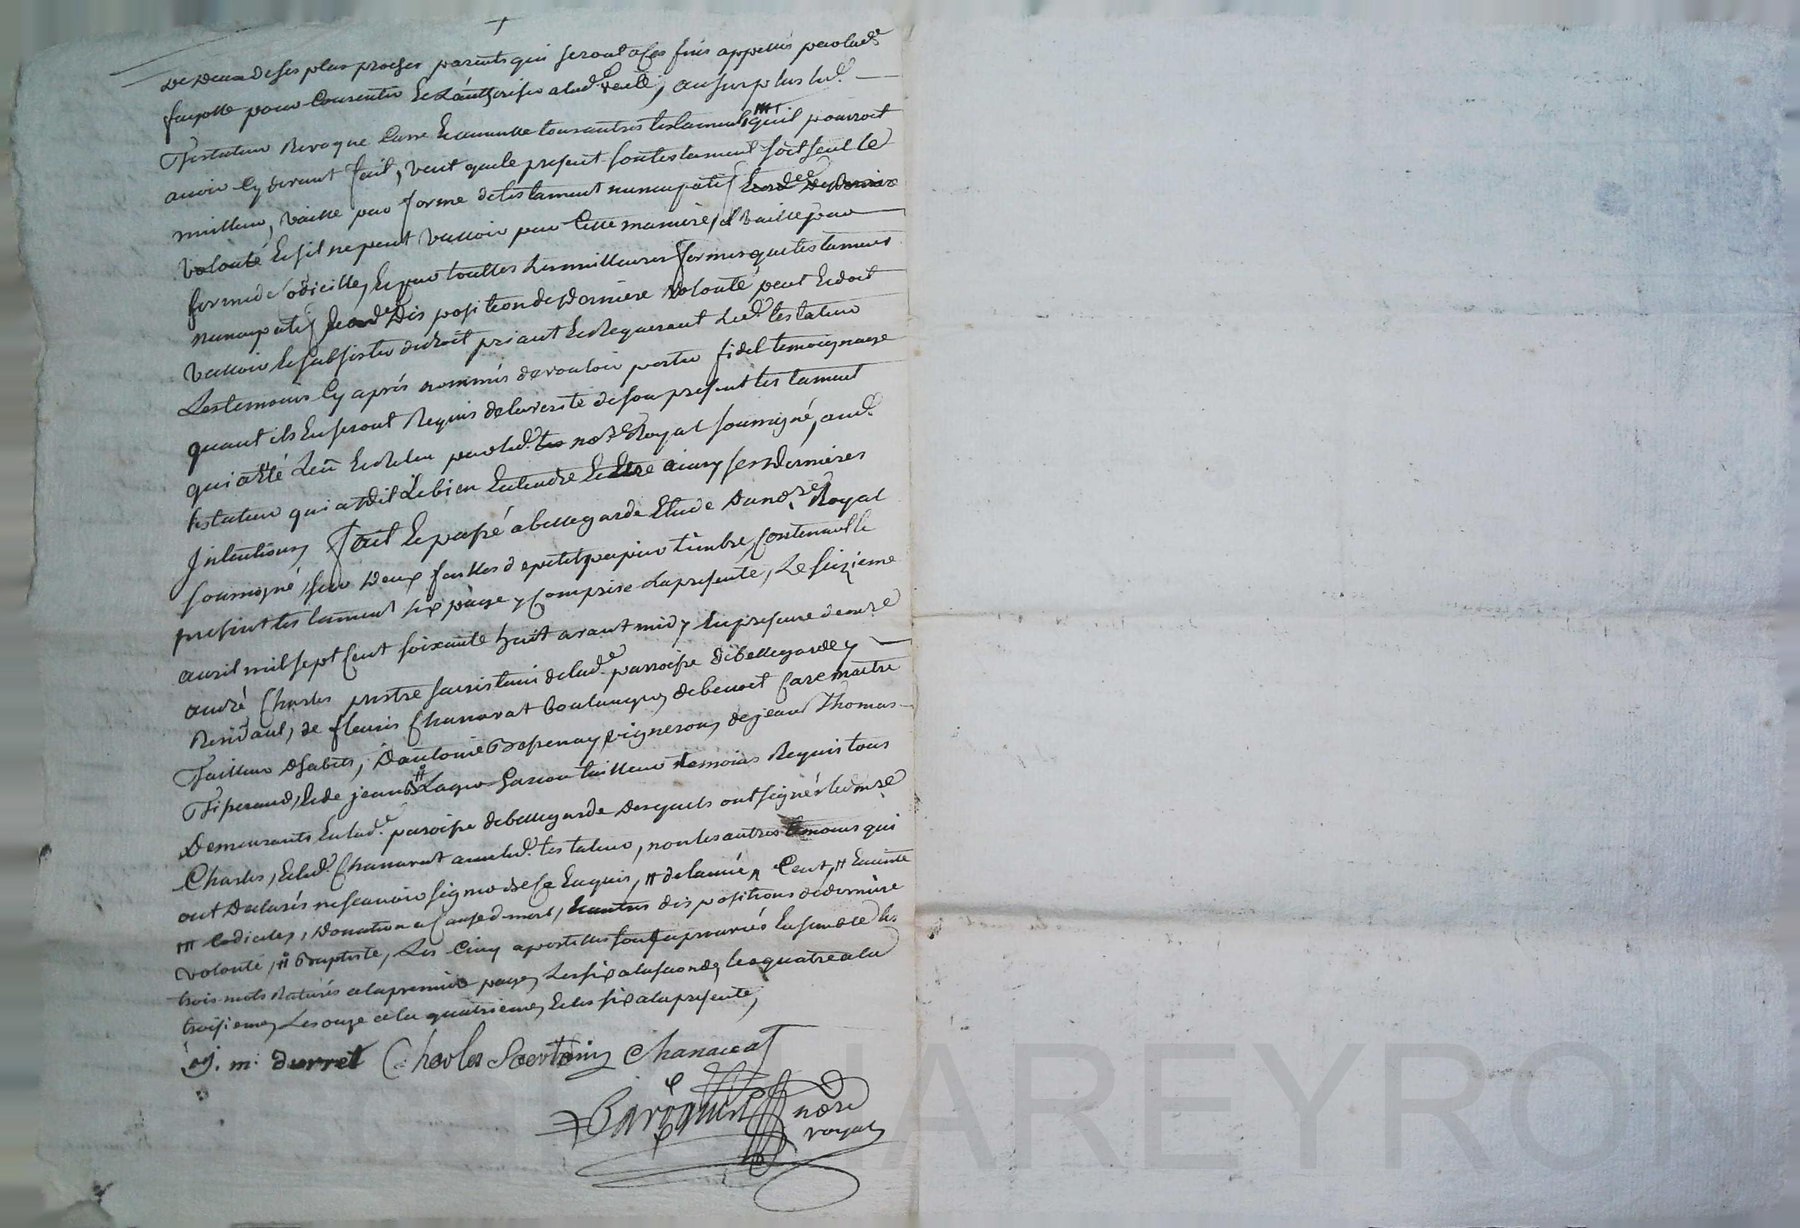 De Deux de ses plus proches parents qui seront a Ces fins appellés par lad.e
fayolle pour Consentir Et authoriser a lad.e vente, au surplus led.
Testateur Revoque Casse Et annulle tous autres testaments ### qu'il pourroit
avoir Cy devant fait, veut que le present son testament soit seul le
meilleur, vaille par forme de testament nuncupatif
volonté Et s'il ne peut valloir par Cette maniere, Il vaille par
forme de Codicille, Et par touttes les meilleures formes que testament
nuncupatif Disposition de Derniere volonté peut Et doit
valloir Et subsister de droit priant Et Requerant led. testateur
Les temoins Cy après nommés de vouloir porter fidel temoignage
quant ils En seront Requis de la verité de son present testament
qui a été Leü Et Relu par led. no.re Royal soussigné, aud.
testateur qui a dit Le bien Entendre Et Etre ainsy ses Dernières
Intentions, fait Et passé a bellegarde Etude Dud no.re Royal
soussigné, sur Deux feuilles de petit papier timbre, Contenant le
present testament six pages y Comprise La presente, Le seizieme
avril mil sept Cent soixante huit avant midy En presence de m.re
André Charles prestre sacristain de lad.e parroisse De bellegarde y
Residant, de fleuris Chanavat boulanger, de benoit Care maitre
Tailleur d'habits, D'antoine vigneron, de jean Thomas
Et de jean # garçon tailleur temoins Requis tous
Demeurants En lad.e paroisse de bellegarde Desquels ont signé led m.re
Charles, Et led. Chanavat avec led. testateur, non les autres temoins qui
ont Declarés ne scavoir signer de Ce Enquis, # de lannée, Cent, #
### Codicilles, Donation a Cause de mort, dispositions de derniere
volonté, # Baptiste, Les Cinq apostilles sont approuvées Ensemble les
trois mots Raturés a la premiere page, Les six a la seconde, les quatre a la
troisieme, Les onze a la quatrieme, Et les six a la presente,
j. m. durret Charles Sacristain Chanavat
no.re
royal
HAREYRON